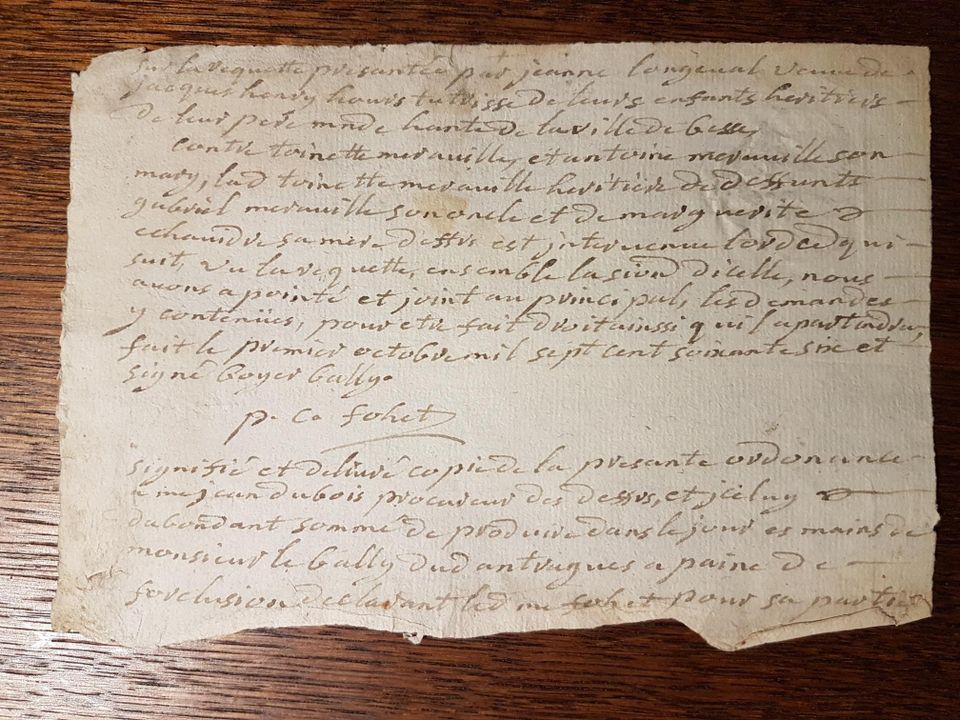 sur la requette presantée par jeanne longeual veuue de
jacques henry hours tutrisse de leurs enfants heritiers
de leur pere mnde hante de la ville de besse,
contre toinette merauille, et antoine merauille son
mary, lad toinette merauille heritiere de deffunts
gabriel merauille son oncle et de marguerite
echaudre sa mere deffrs est interuenue lordce qui
suit, vu la requette, ensemble la sion dicelle, nous
auons apointé et joint au principal, les demandes
y contenües, pour etre fait droit ainssi qu il apartindra,
fait le premier octobre mil sept cent soixante six et
signé boyer bally.
p. co fohet
signifié et deliuré copie de la presante ordonance
a me jean dubois procureur des dessrs, et jceluy
dabondant sommé de produire dans le jour es mains de
monsieur le bally dud antragues a paine de
forclusion declarant led me fohet pour sa partie